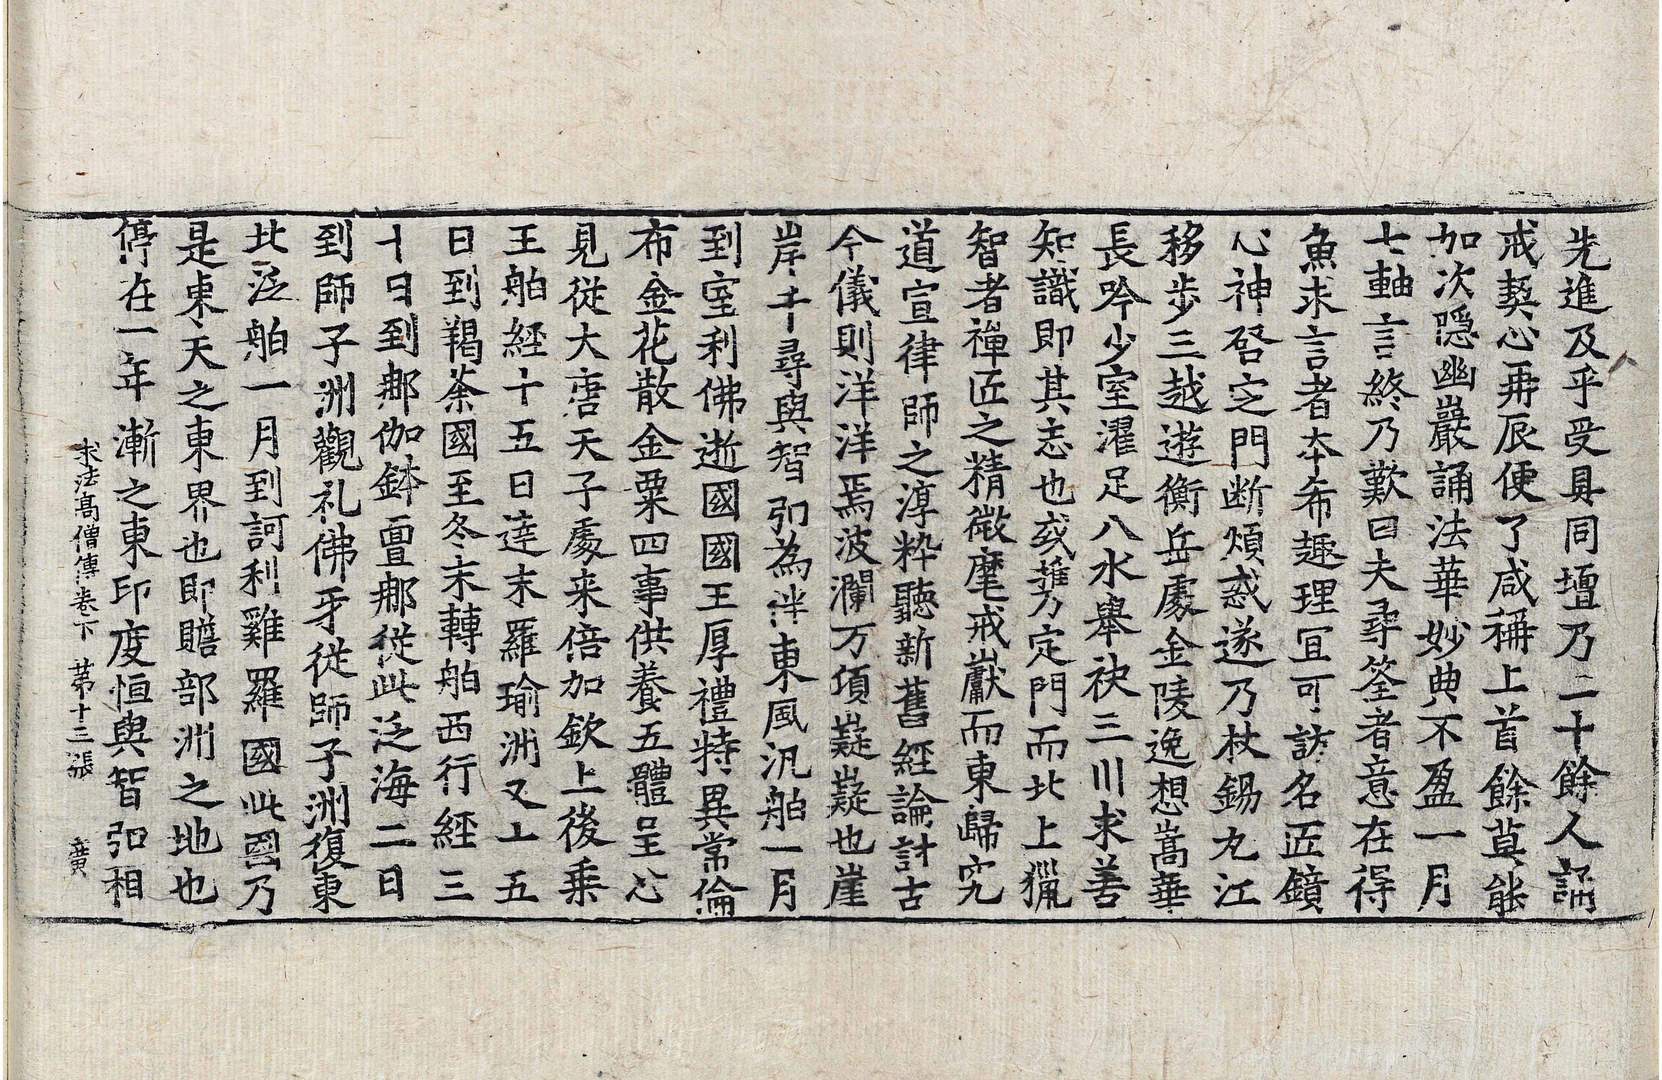 先進及乎受具同壇乃二十餘人誦
戒契心再辰便了咸稱上首餘莫能
加次隱幽巖誦法華妙典不盈一月
七軸言終乃歎曰夫尋筌者意在得
魚求言者本希趣理冝可訪名匠鏡
心神啓定門断煩惑遂乃杖錫九江
移步三越遊衡岳處金陵逸想嵩華
長吟少室濯足八水舉袂三川求善
知識即其志也或攀定門而北上獵
智者禪匠之精微麾戒巘而東歸究
道宣律師之淳粹聽新舊經論討古
今儀則洋洋焉波瀾万頃嶷嶷也崖
岸千尋與智弘為泮東風汎舶一月
到室利佛逝國國王厚禮特異常倫
布金花散金粟四事供養五體呈心
見從大唐天子處来倍加欽上後乗
王舶經十五日逹末羅瑜洲又十五
日到羯荼國至冬末轉舶西行經三
十日到那伽鉢亶那從此泛海二日
到師子洲觀礼佛牙從師子洲復東
北泛舶一月到訶利雞羅國此國乃
是東天之東界也即贍部洲之地也
停在一年漸之東印度恒與智弘相
求法髙僧傳卷下 苐十三張 廣